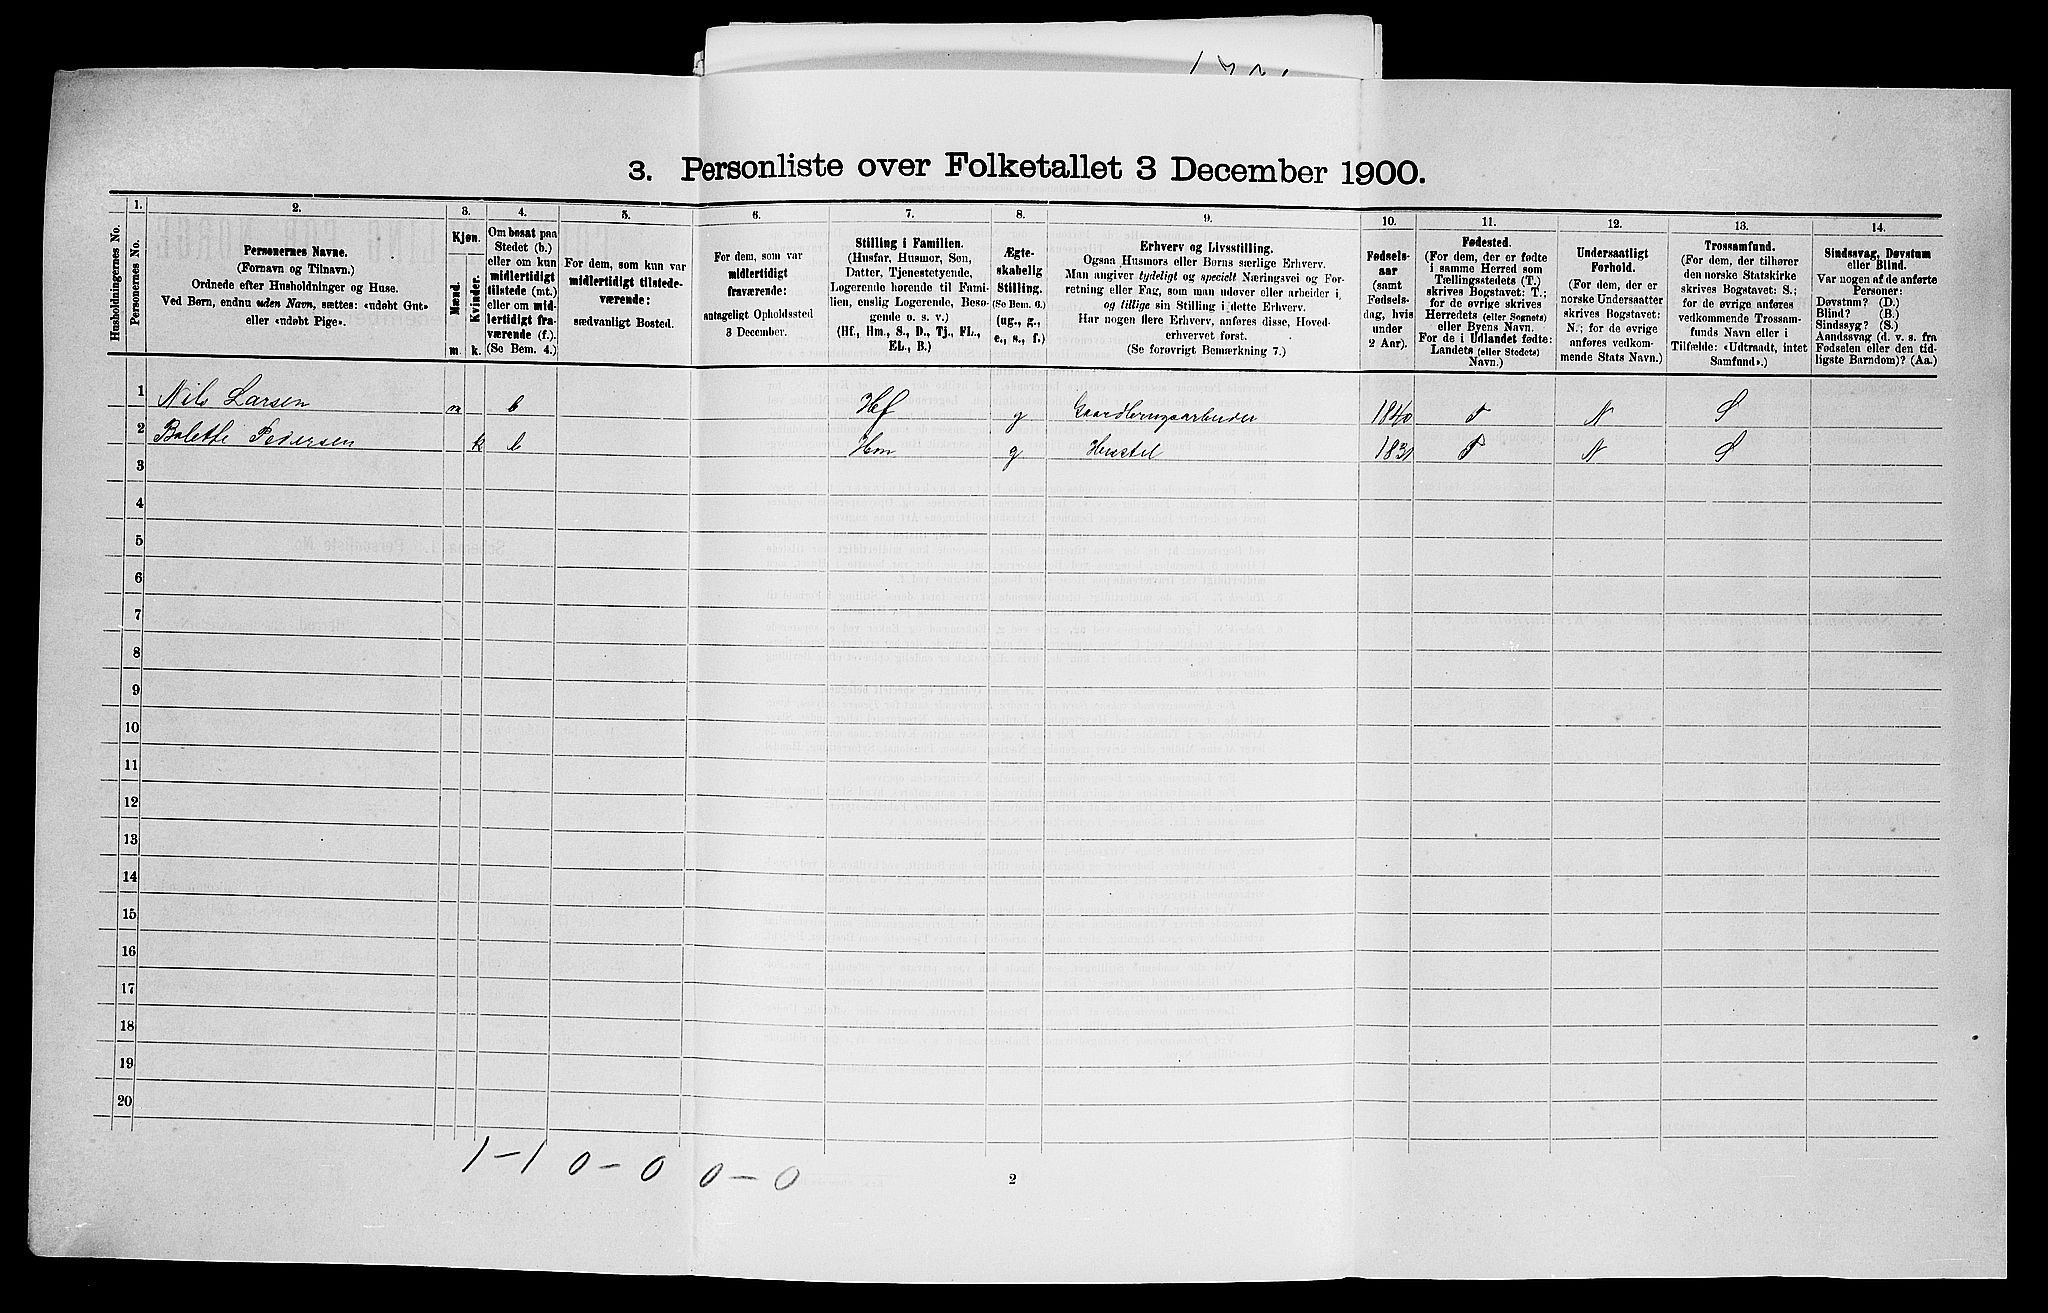 3. Personliste over Folketallet 3 December 1900.
Husholdningernes No.
1.
Personernes No.
2.
Personernes Navne.
(Fornavn og Tilnavn.)
Ordnede efter Husholdninger og Huse.
Ved Børn, endnu uden Navn, sættes: «udøbt Gut»
eller «udøbt Pige».
3.
Kjøn.
Mænd.
Kvinder.
m. k.
4.
Om bosat paa
Stedet (b.)
eller om kun
midlertidigt
tilstede (mt.)
eller om mid-
lertidigt fra-
værende (f.).
(Se Bem. 4.)
5.
For dem, som kun var
midlertidigt tilstede-
værende:
sædvanligt Bosted.
6.
For dem, som var
midlertidigt
fraværende:
antageligt Opholdssted
3 December.
7.
Stilling i Familien.
(Husfar, Husmor, Søn,
Datter, Tjenestetyende,
Logerende hørende til Fami-
lien, enslig Logerende, Besø-
gende o. s. v.)
(Hf., Hm., S., D., Tj., FL.,
EL., B.)
8.
Ægte-
skabelig
Stilling.
(Se Bem. 6.)
(ug., g.,
e., s., f.)
9.
Erhverv og Livsstilling.
Ogsaa Husmors eller Børns særlige Erhverv.
Man angiver tydeligt og specielt Næringsvei og For-
retning eller Fag, som man udøver eller arbeider i,
og tillige sin Stilling i dette Erhverv.
Har nogen flere Erhverv, anføres disse, Hoved-
erhvervet først.
(Se forøvrigt Bemærkning 7.)
10.
Fødsels-
aar
(samt
Fødsels-
dag, hvis
under
2 Aar).
11.
Fødested.
(For dem, der er fødte
i samme Herred som
Tællingsstedets (T.)
skrives Bogstavet: T.;
for de øvrige skrives
Herredets (eller Sognets)
eller Byens Navn.
For de i Udlandet fødte:
Landets (eller Stedets)
Navn.)
12.
Undersaatligt
Forhold.
(For dem, der er
norske Undersaatter
skrives Bogstavet:
N.; for de øvrige
anføres vedkom-
mende Stats Navn.)
13.
Trossamfund.
(For dem, der tilhører
den norske Statskirke
skrives Bogstavet: S.;
for de øvrige anføres
vedkommende Trossam-
funds Navn eller i
Tilfælde: «Udtraadt, intet
Samfund».)
14.
Sindssvag, Døvstum
eller Blind.
Var nogen af de anførte
Personer:
Døvstum? (D.)
Blind? (B.)
Sindssyg? (S.)
Aandssvag (d. v. s. fra
Fødselen eller den tid-
ligste Barndom)? (Aa.)
1 Nils Larsen m b Hf g Gaardbrugsarbeider 1840 T N S
2 Bolette Pedersen k b Hm g Husstel 1831 T N S
3
4
5
6
7
8
9
10
11
12
13
14
15
16
17
18
19
20
1-1 0-0 0-0
2